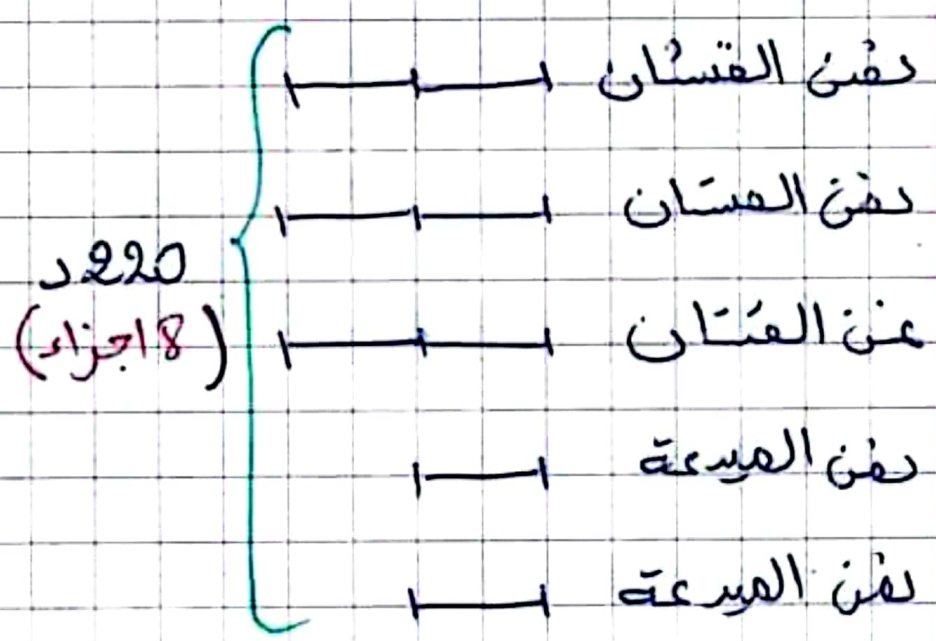 ثمن الفستان
ثمن الفستان
ثمن الفستان
ثمن الميدعة
ثمن الميدعة
220د
(8 اجزاء)